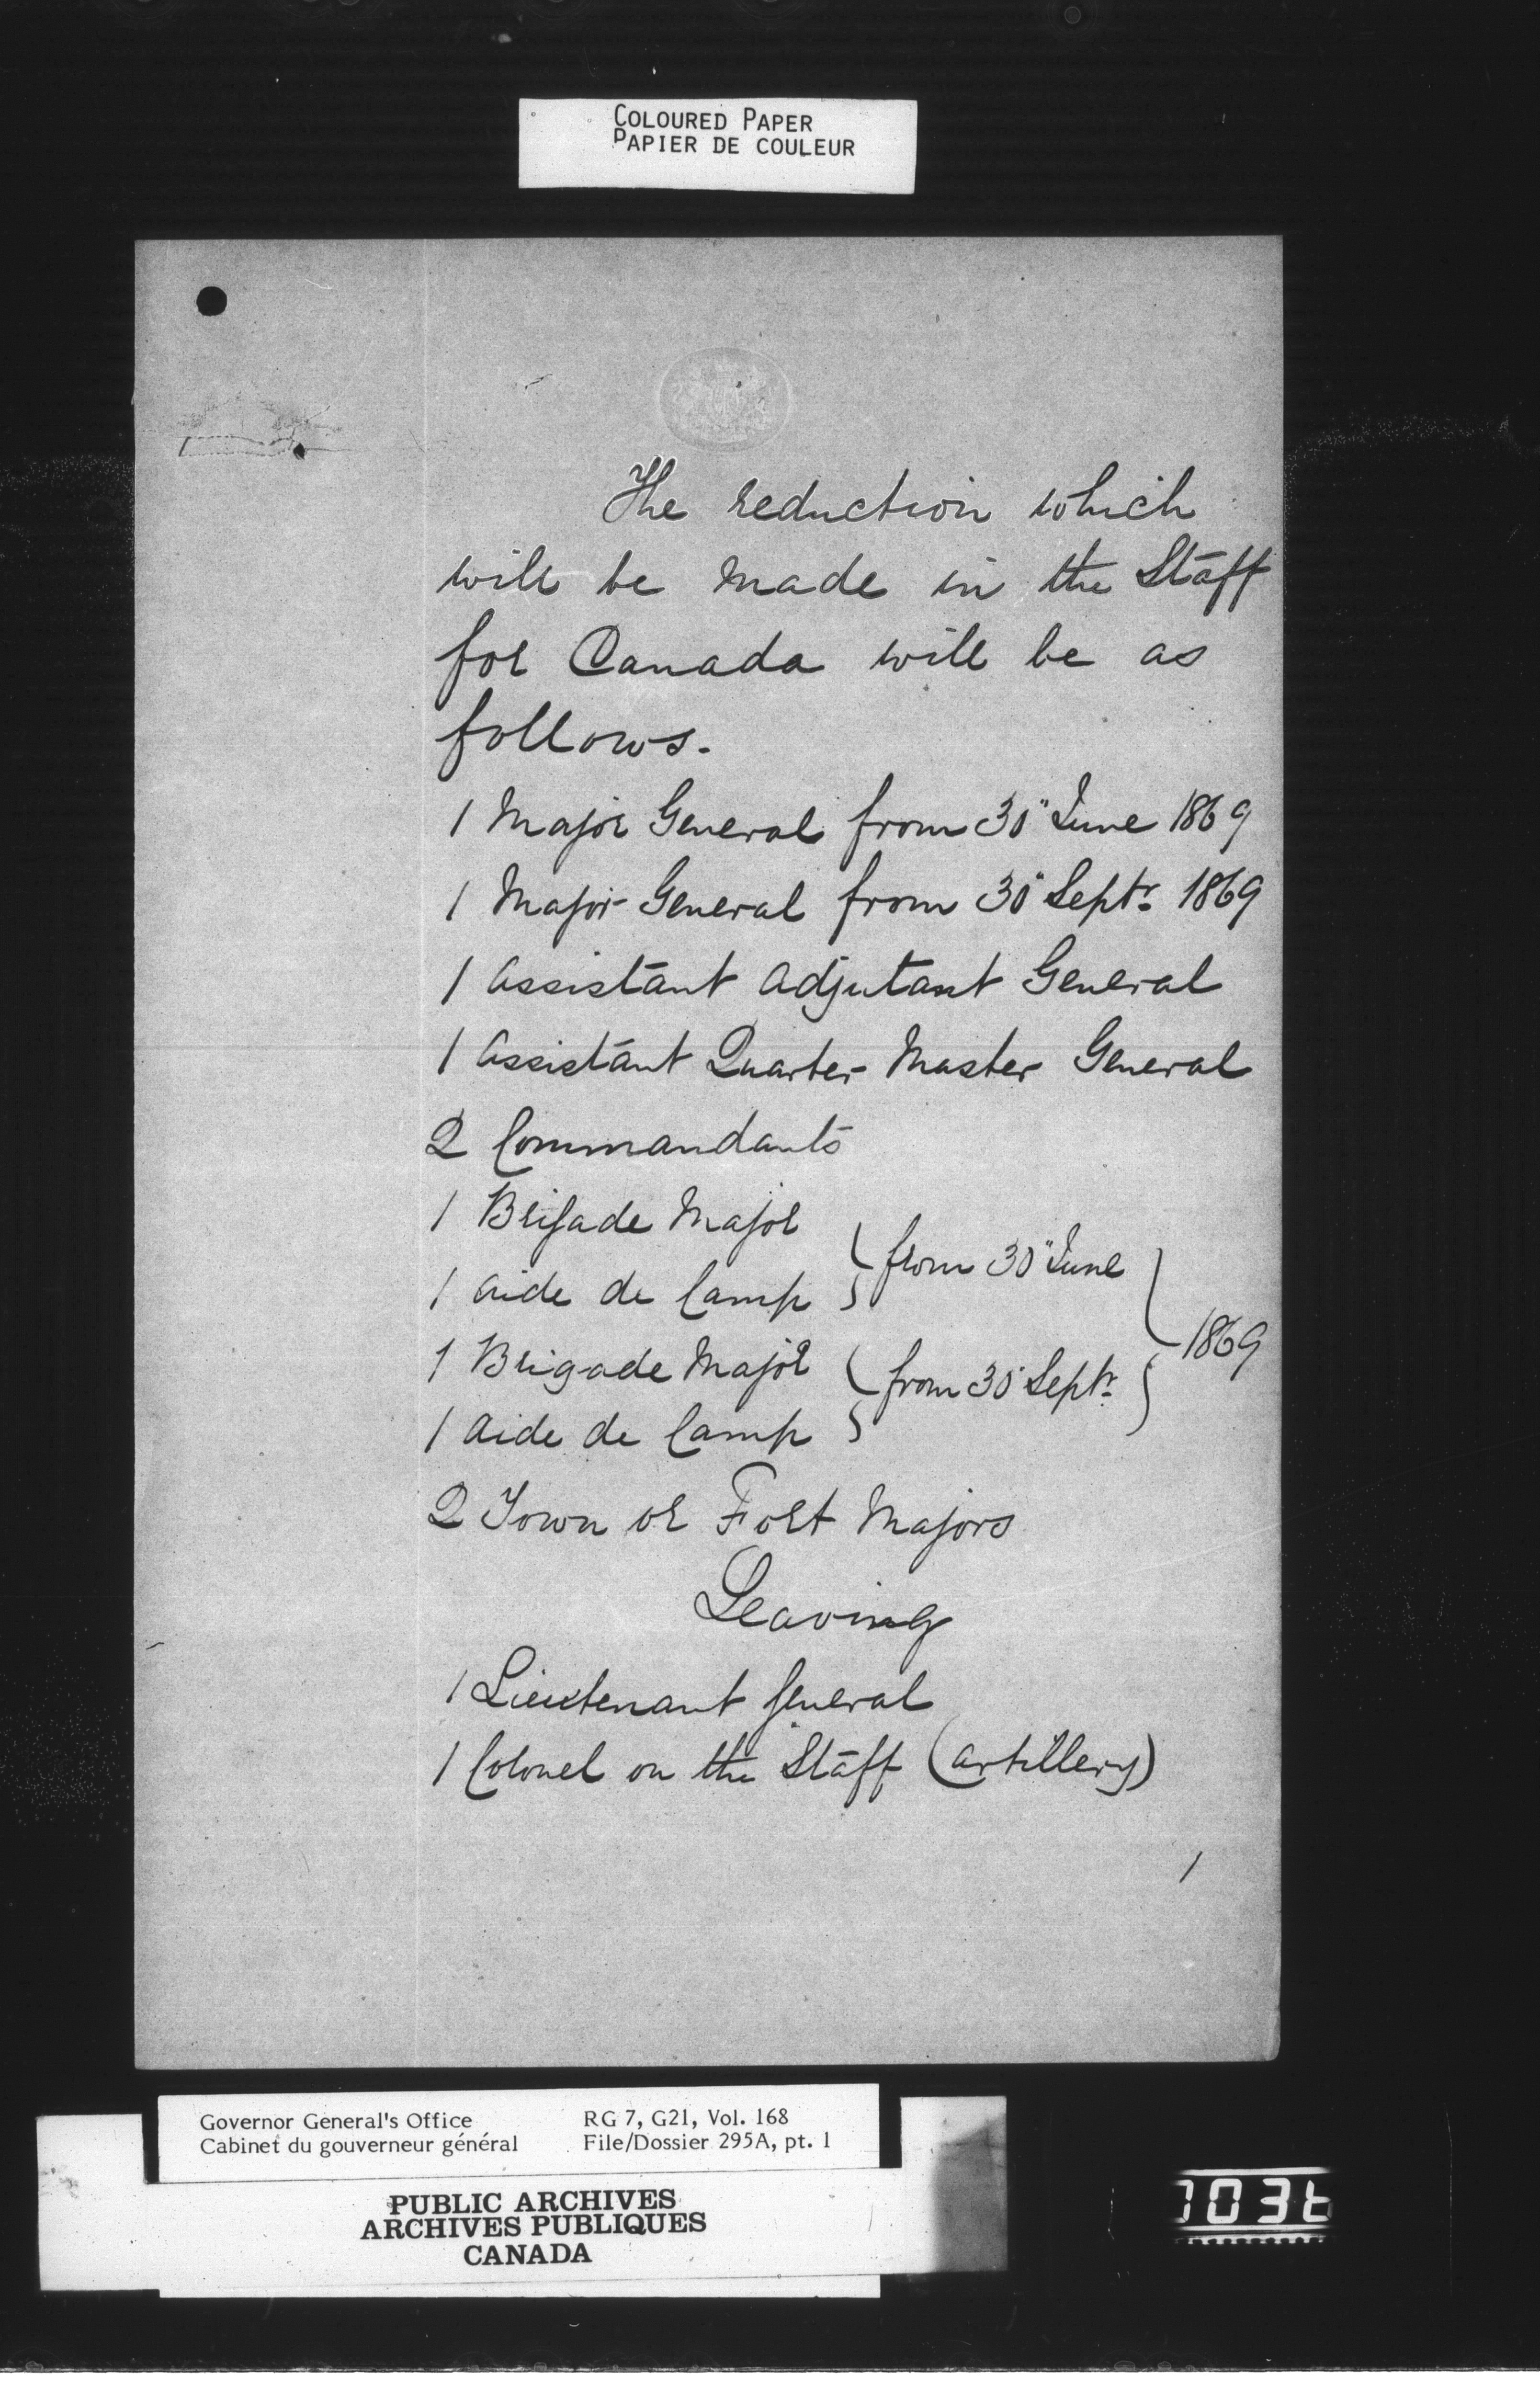 COLOURED PAPER
PAPIER DE COULEUR
The reduction which
will be made in the Staff
for Canada will be as
follows.
1 Major General from 30" June 1869
1 Major General from 30" Septr. 1869
1 Assistant Adjutant General
1 Assistant Quarter Master General
2 Commandants
1 Brigade Major
1 Aide de Camp } from 30" June
1 Brigade Major
1 Aide de Camp } from 30" Septr. } 1869
2 Town or Fort Majors
Leaving
1 Lieutenant General
1 Colonel on the Staff (Artillery)
1
Governor General's Office RG 7, G21, Vol. 168
Cabinet du gouverneur général File/Dossier 295A, pt. 1
PUBLIC ARCHIVES
ARCHIVES PUBLIQUES
CANADA